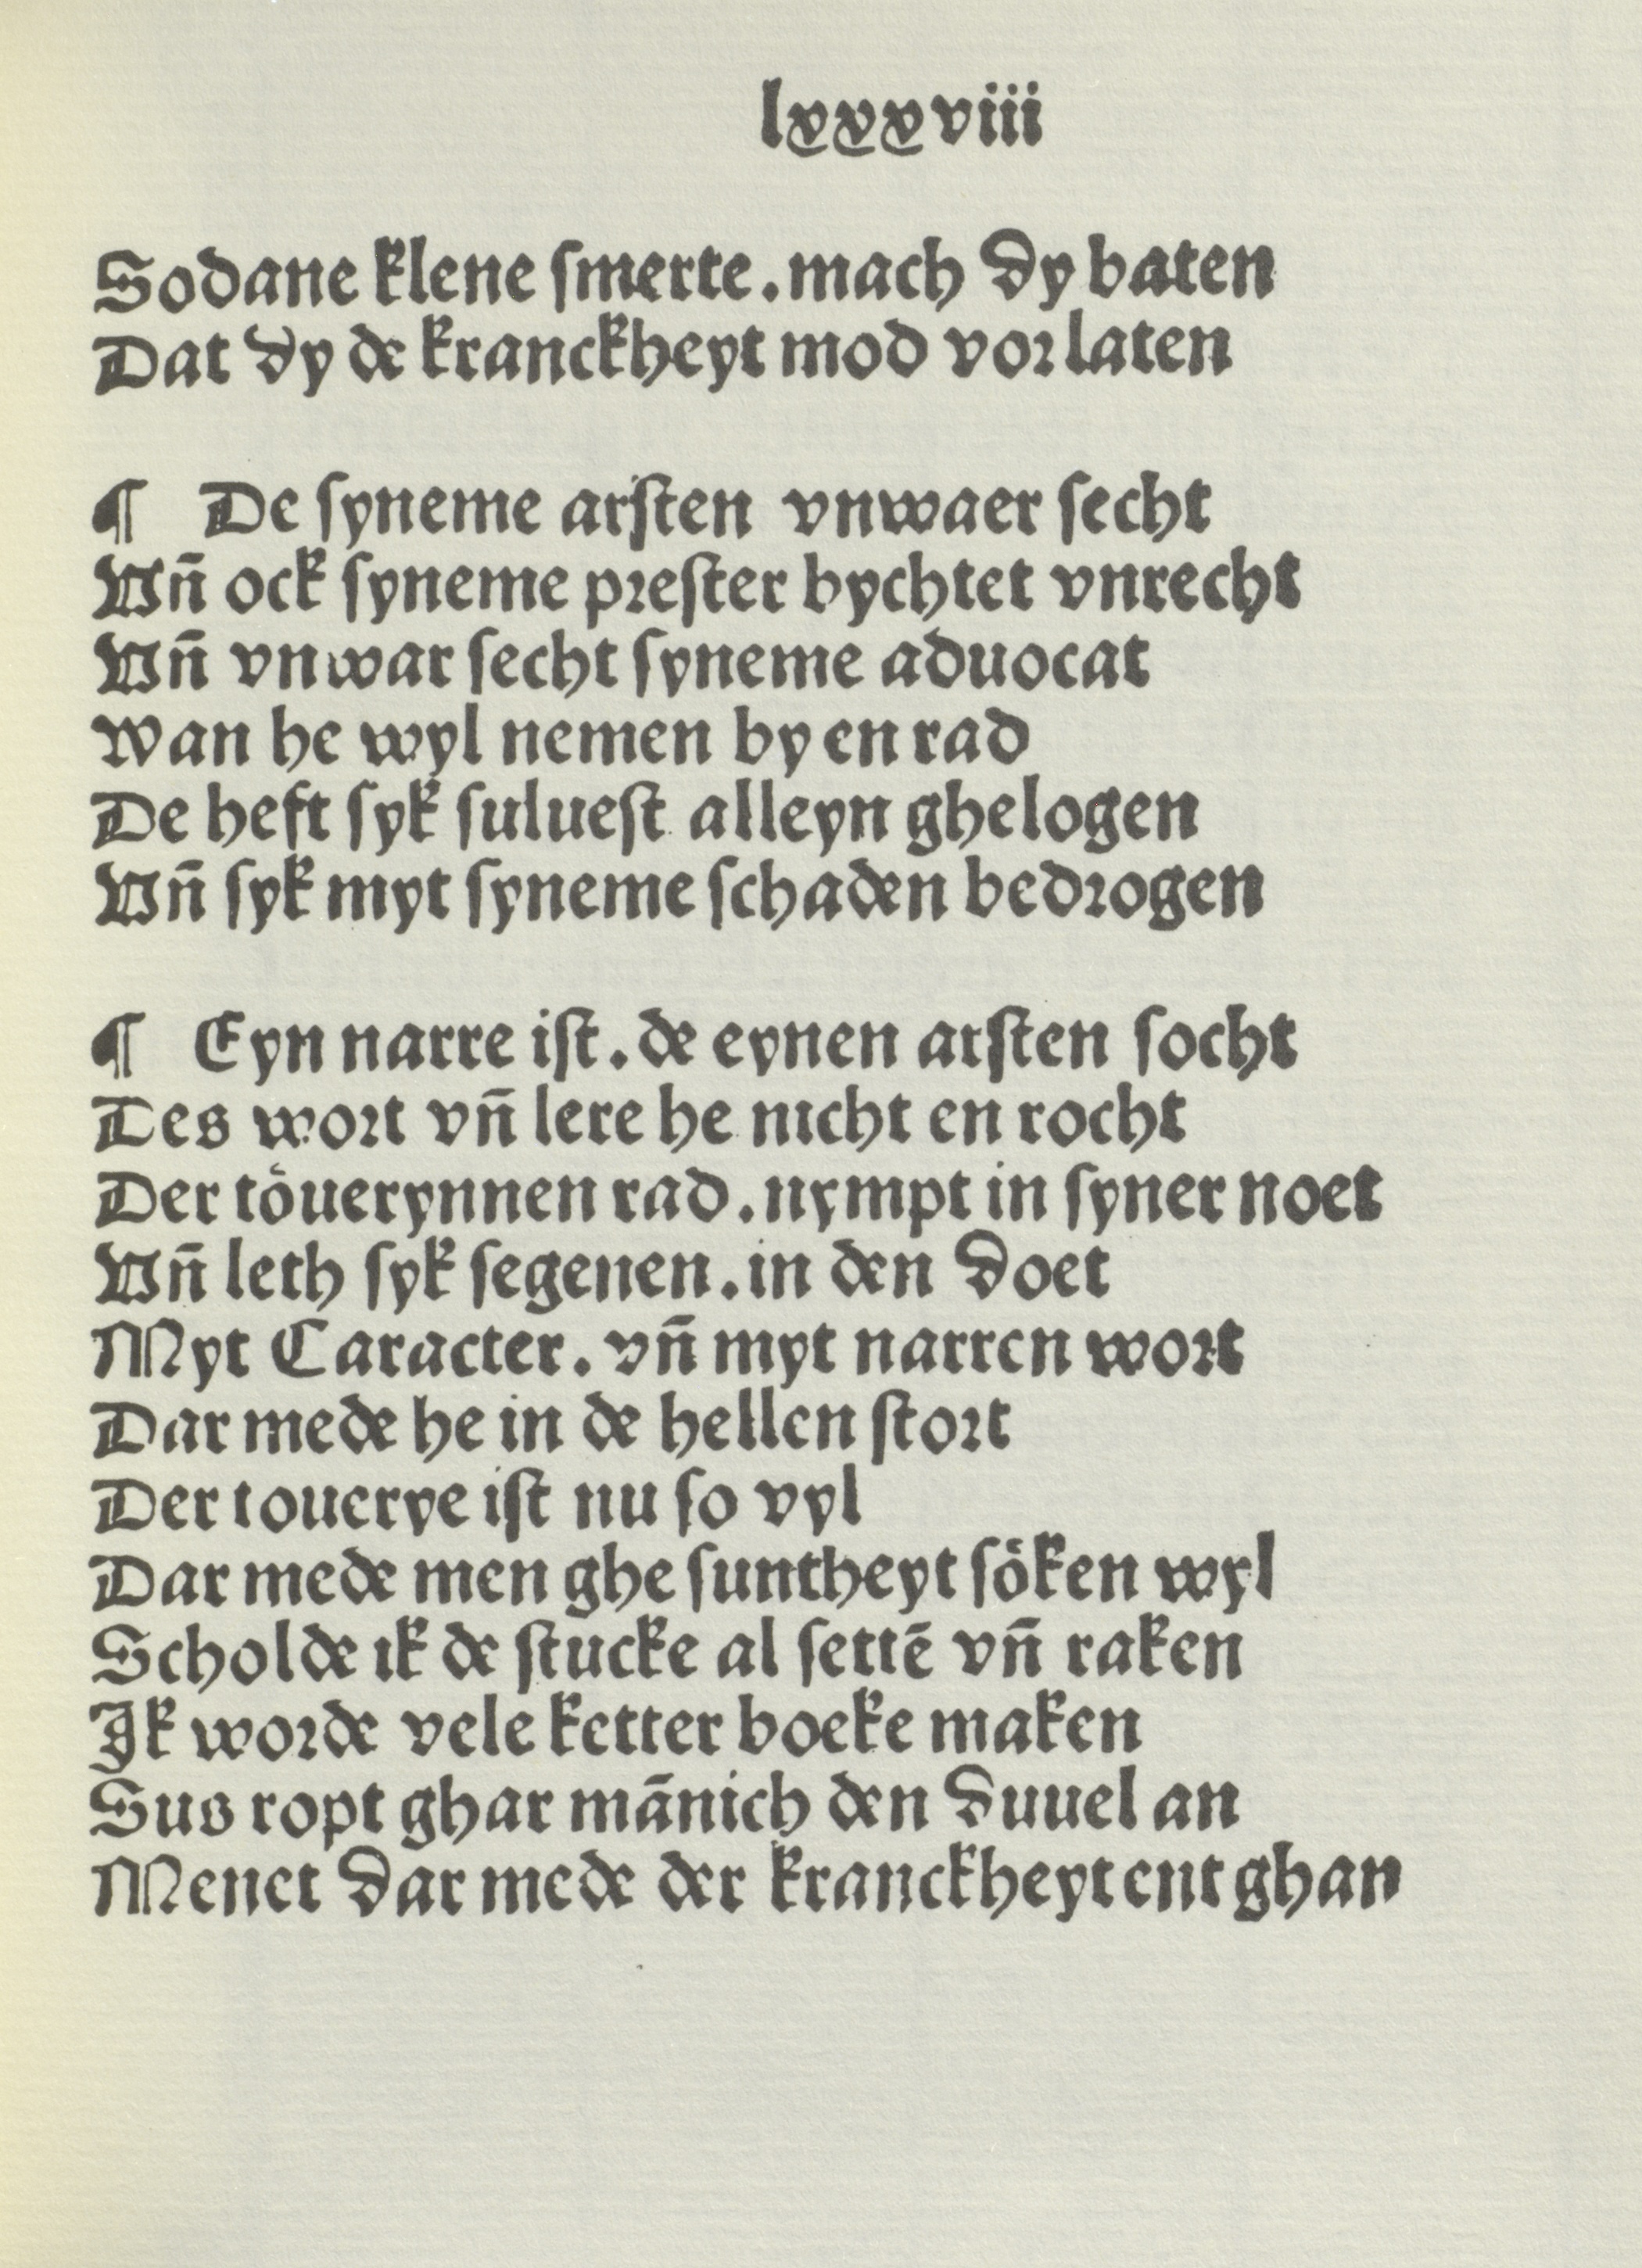 lxxxviii
Sodane klene ſmerte. mach dy baten
Dat dy de kranckheyt mod vorlaten
¶ De ſyneme arſten vnwaer ſecht
Vn̄ ock ſyneme preſter bychtet vnrecht
Vn̄ vnwar ſecht ſyneme aduocat
Wan he wyl nemen by en rad
De heft ſyk ſulueſt alleyn ghelogen
Vn̄ ſyk myt ſyneme ſchaden bedrogen
¶ Eyn narre iſt. de eynen arſten ſocht
Des wort vn̄ lere he nicht en rocht
Der toͤuerynnen rad. nympt in ſyner noet
Vn̄ leth ſyk ſegenen. in den doet
Myt Caracter. vn̄ myt narren wort
Dar mede he in de hellen ſtort
Der touerye iſt nu ſo vyl
Dar mede men ghe ſuntheyt ſoͤken wyl
Scholde ik de ſtucke al ſettē vn̄ raken
Ik worde vele ketter boeke maken
Sus ropt ghar mānich den duuel an
Menet dar mede der kranckheyt ent ghan